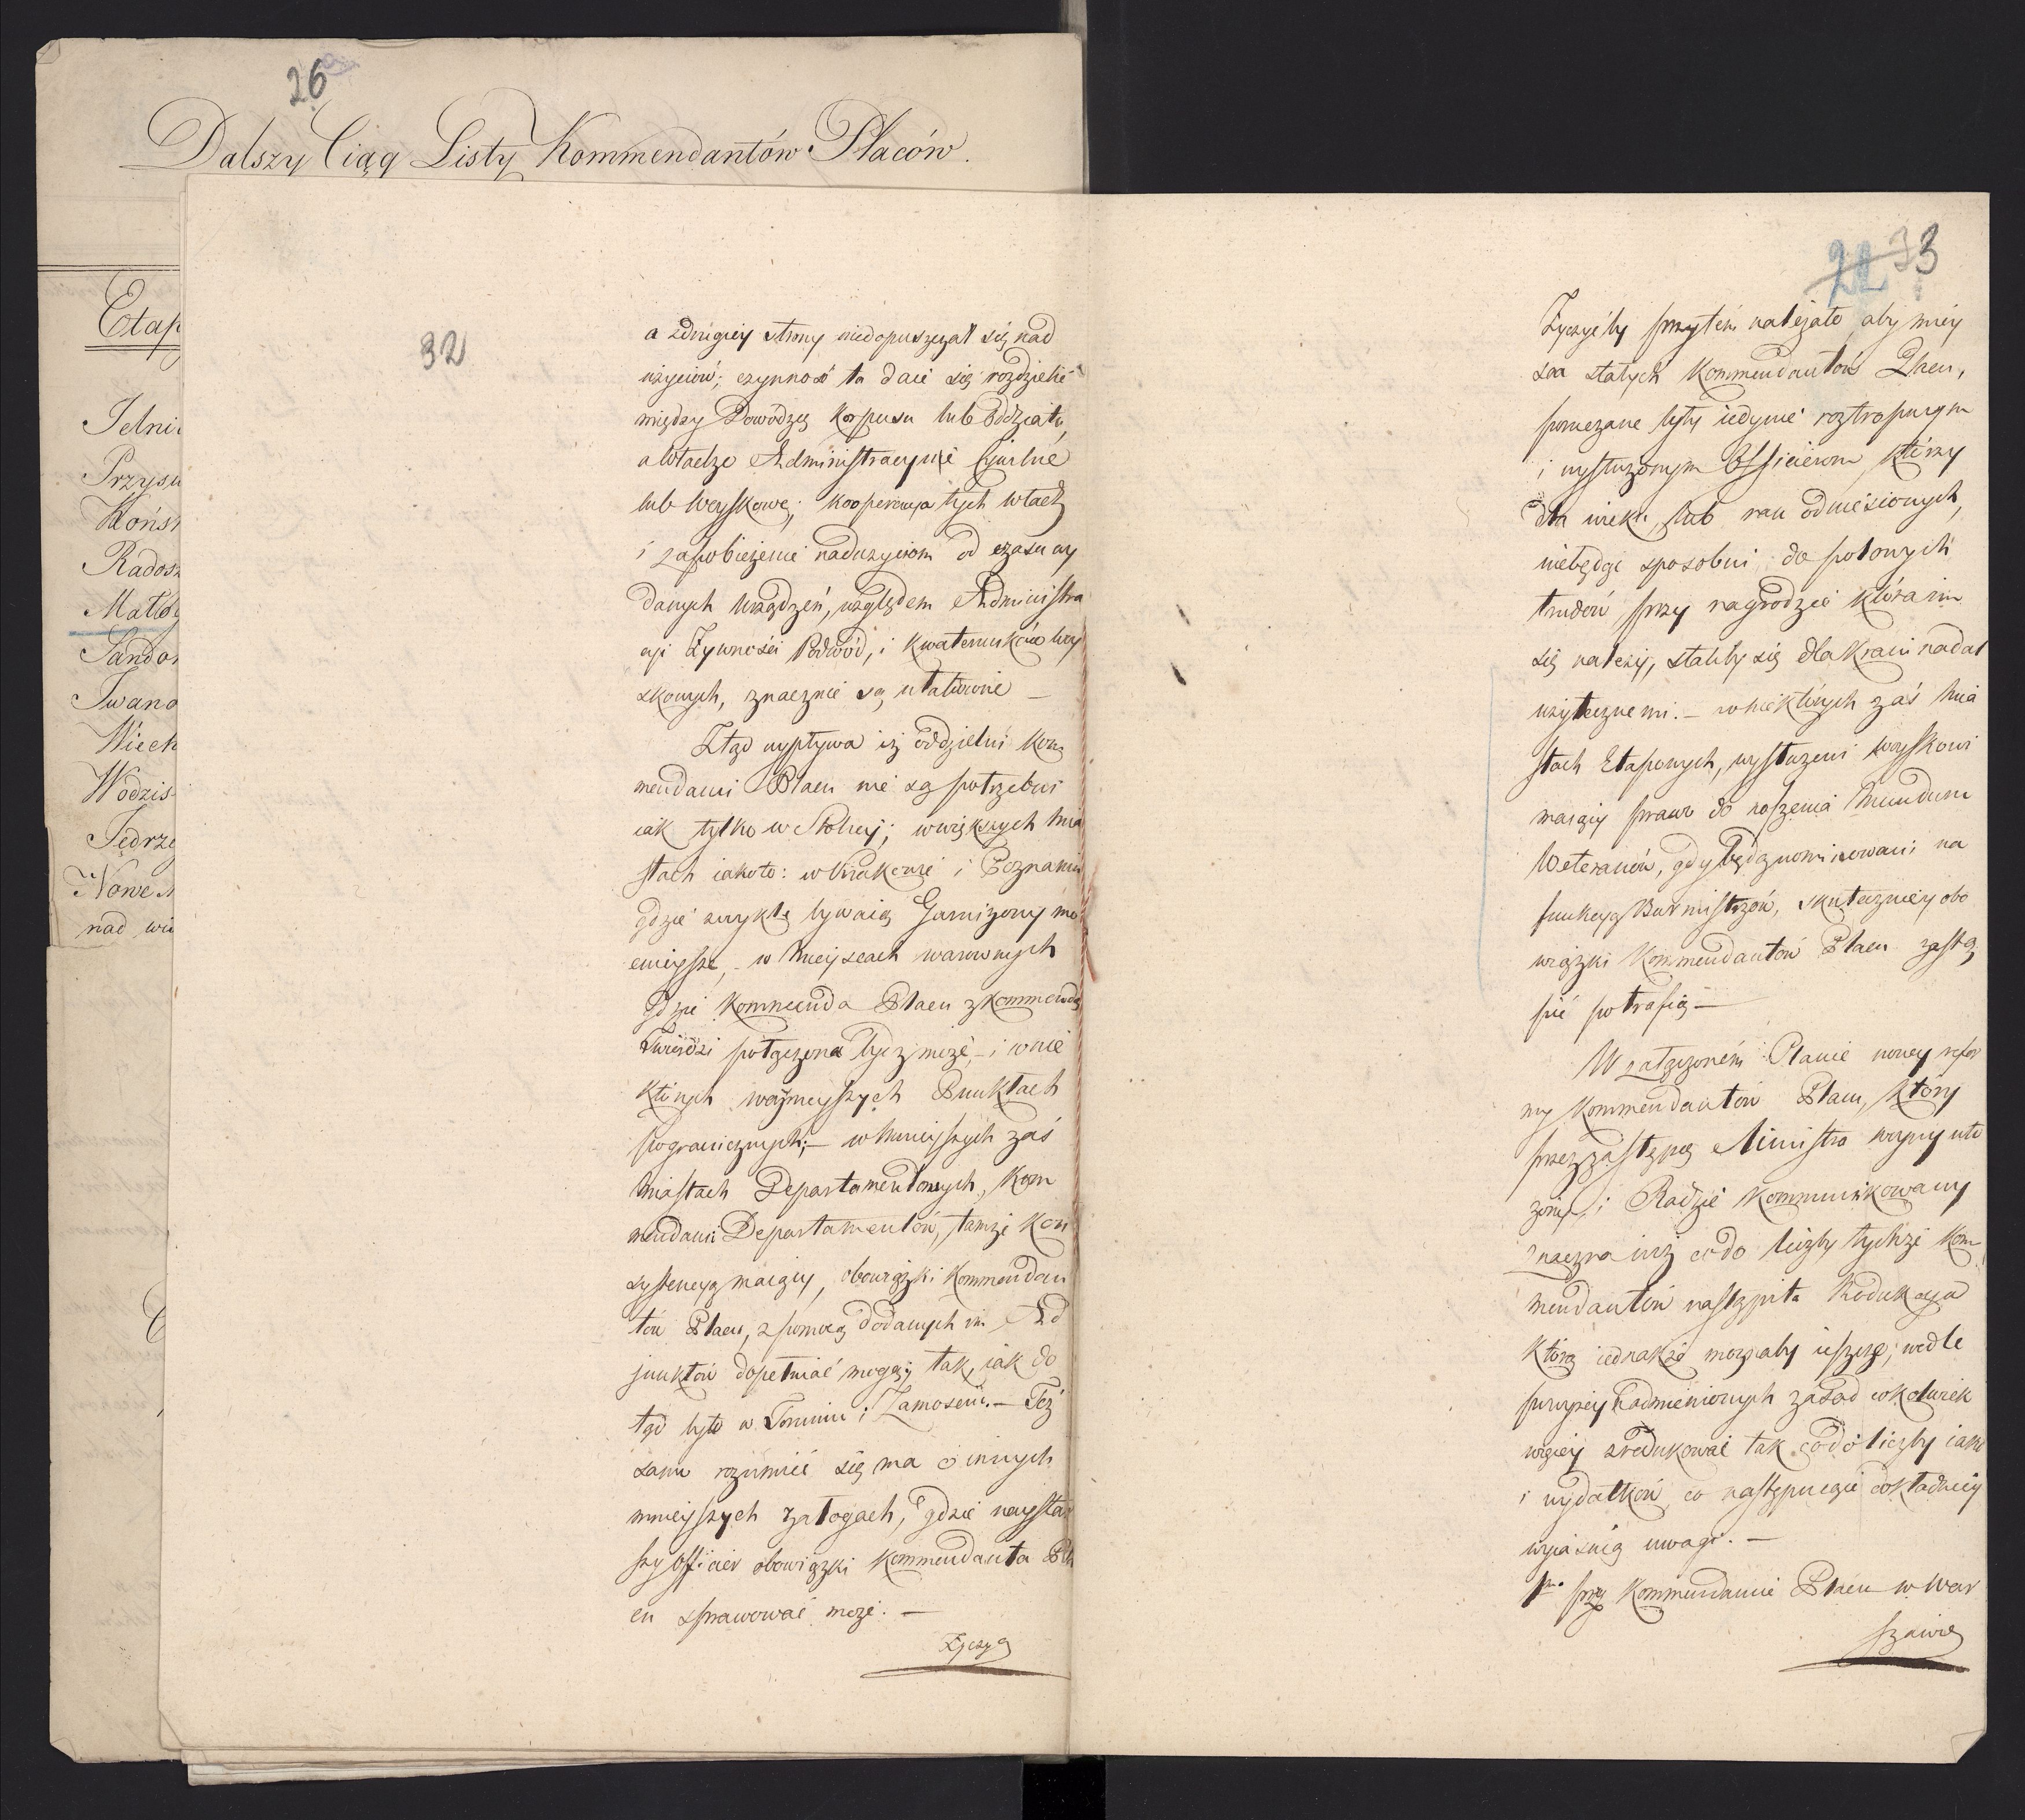 26
Dalszy Ciąg Listy Kommendantów Placów.
Etap
Przysu
Końs
Rados
Sando
Iwano
Wodzis
Jędrze
Nowe
nad wi
32
a zdrugiey strony niedopuszczał się nad
użyciów; czynność ta daie się rozdzielić
między Dowódzcę Korpusu lub Oddziału,
a Władze Administracyine Cywilne
lub Woyskowe; kooperacya tych władz
i zapobieżenie nadużyciom od czasu wy
danych Urządzeń, względem Administra
cyi Żywności Podwód, i Kwaterunków woy
skowych, znacznie są ułatwione —
Ztąd wypływa iż oddzielni Kom
mendanci Placu nie są potrzebni
iak tylko w Stolicy; w większych Mia
stach iakoto: w Krakowie i Poznaniu
gdzie zwykle bywaią Garnizony mo
cnieysze, – w Mieyscach warownych
gdzie Kommenda Placu z Kommendą
Twierdzi połączona bydź może, – i w nie
których ważnieyszych Punktach
pogranicznych; – w Mnieyszych zaś
Miastach Departamentowych, Kom
mendanci Departamentów, tamże Kon
systencyą maiący, obowiązki Kommendan
tów Placu, z pomocą dodanych im Ad
junktów dopełniać mogą; tak, iak do
tąd było w Toruniu i Zamościu. – Toż
samo rozumieć się ma o innych
mnieyszych załogach, gdzie naystar
szy Officier obowiązki Kommendanta Pla
cu sprawować może. —
Życzyć
22 33
Życzyćby przytém należało, aby miey
sca stałych Kommendantów Placu,
poruczane były iedynie roztropnym
i wysłużonym Officierom, którzy
dla wieku, lub ran odniesionych,
niebędąc sposobni do polowych
trudów przy nagrodzie która im
się należy, staliby się dla Kraiu nadal
użytecznemi. – w niektórych zaś Mia
stach Etapowych, wysłużeni woyskowi
maiący prawo do noszenia Munduru
Weteranów, gdy będą nominowani na
funkcyą Burmistrzów, skuteczniey obo
wiązki Kommendantów Placu zastą
pić potrafią —
W załączoném Planie nowey refor
my Kommendantów Placu, który
przez zastępcę Ministra woyny uło
żony, i Radzie Kommunikowany
znaczna iuż co do liczby tychże Kom
mendantów nastąpiła Redukcya
którą iednakże możnaby ieszcze, wedle
powyżey nadmienionych zasad cokolwiek
więcey zredukować tak co do liczby iako
i wydatków, co następuiące dokładniey
wyiaśnią uwagi. —
1mo przy Kommendancie Placu w War
szawie